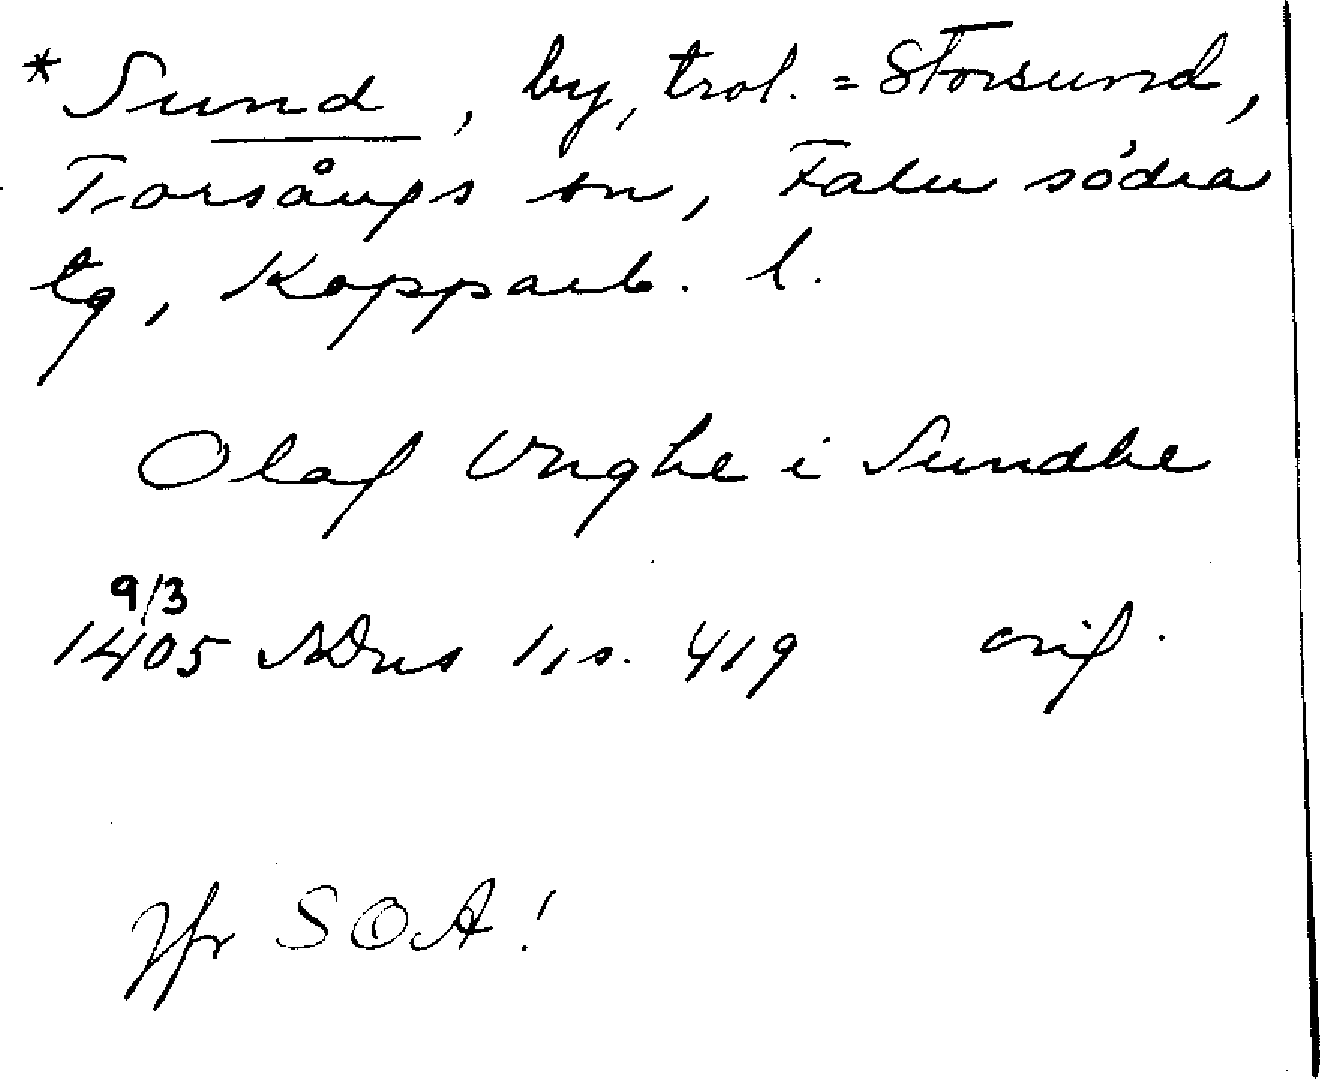 * Sund, by, trol. = Storsund,
Torsångs sn, Falu södra
tg, Kopparb. l.
Olaf Vnghe i Sundhe
9/3
1405 SDns 1, s. 419 orig.
Jfr SOA!